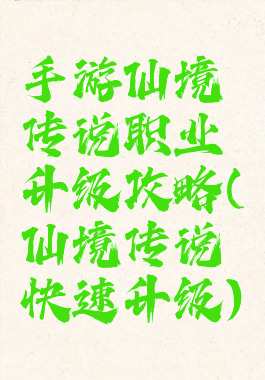 手游仙境
传说职业
升级攻略(
仙境传说
快速升级)